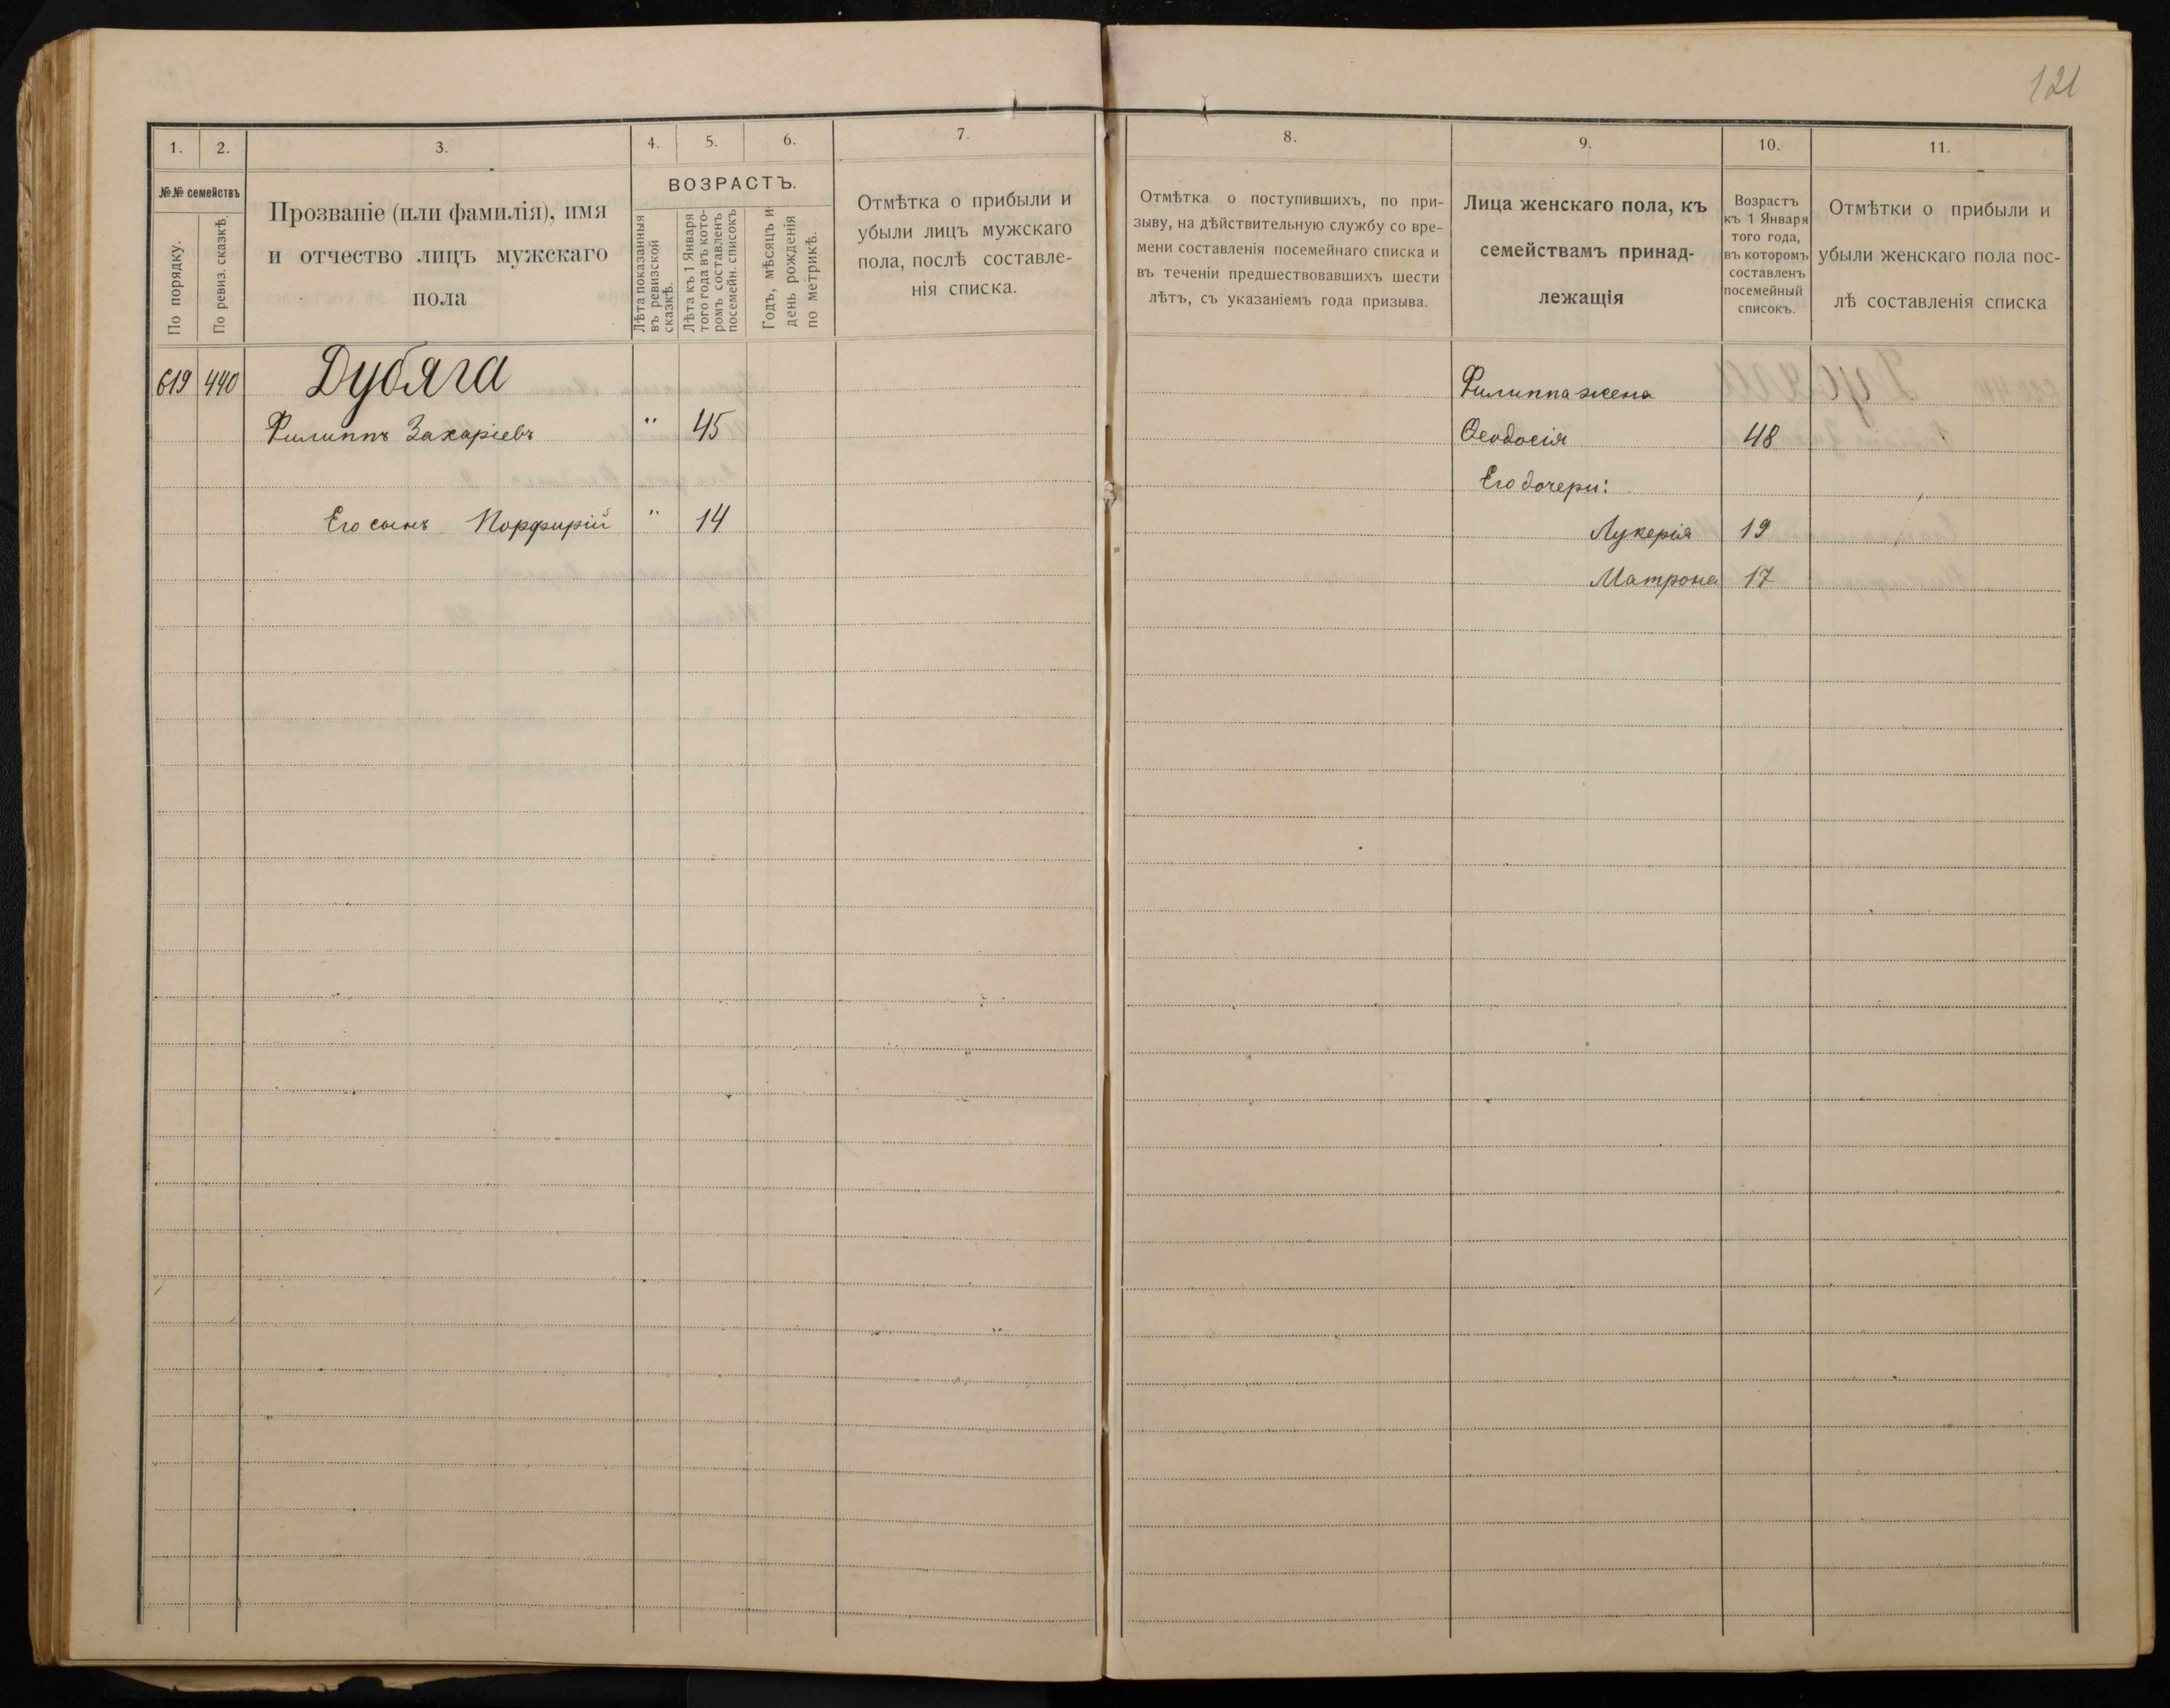 121
1.
2.
3.
4.
5.
6.
7.
№№ семействъ
По порядку.
По ревиз. сказкѣ.
Прозваніе (или фамилія), имя
и отчество лицъ мужскаго
пола
ВОЗРАСТЪ.
Лѣта показанныя
въ ревизской
сказкѣ.
Лѣта къ 1 Января
того года въ кото-
ромъ составленъ
посемейн. списокъ
Годъ, мѣсяцъ и
день рожденія
по метрикѣ.
Отмѣтка о прибыли и
убыли лицъ мужскаго
пола, послѣ составле-
нія списка.
619 440 Дубяга
Филиппъ Захаріевъ " 45
Его сынъ Порфирій " 14
8.
9.
10.
11.
Отмѣтка о поступившихъ, по при-
зыву, на дѣйствительную службу со вре-
мени составленія посемейнаго списка и
въ теченіи предшествовавшихъ шести
лѣтъ, съ указаніемъ года призыва.
Лица женскаго пола, къ
семействамъ принад-
лежащія
Возрастъ
къ 1 Января
того года,
въ которомъ
составленъ
посемейный
списокъ.
Отмѣтки о прибыли и
убыли женскаго пола пос-
лѣ составленія списка
Филиппа жена
Ѳеодосія 48
Его дочери:
Лукерія 19
Матрона 17